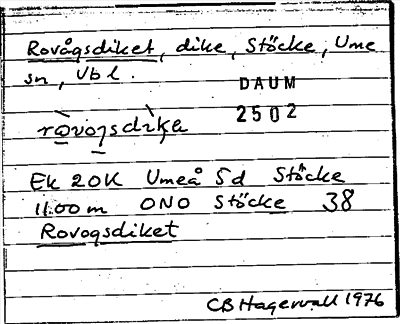 Rovågsdiket, dike, Stöcke, Ume
sn, Vbl.
DAUM
2502
Ek 20K Umeå 5d Stöcke
1100 m ONO Stöcke 38
Rovogsdiket
CB Hagervall 1976